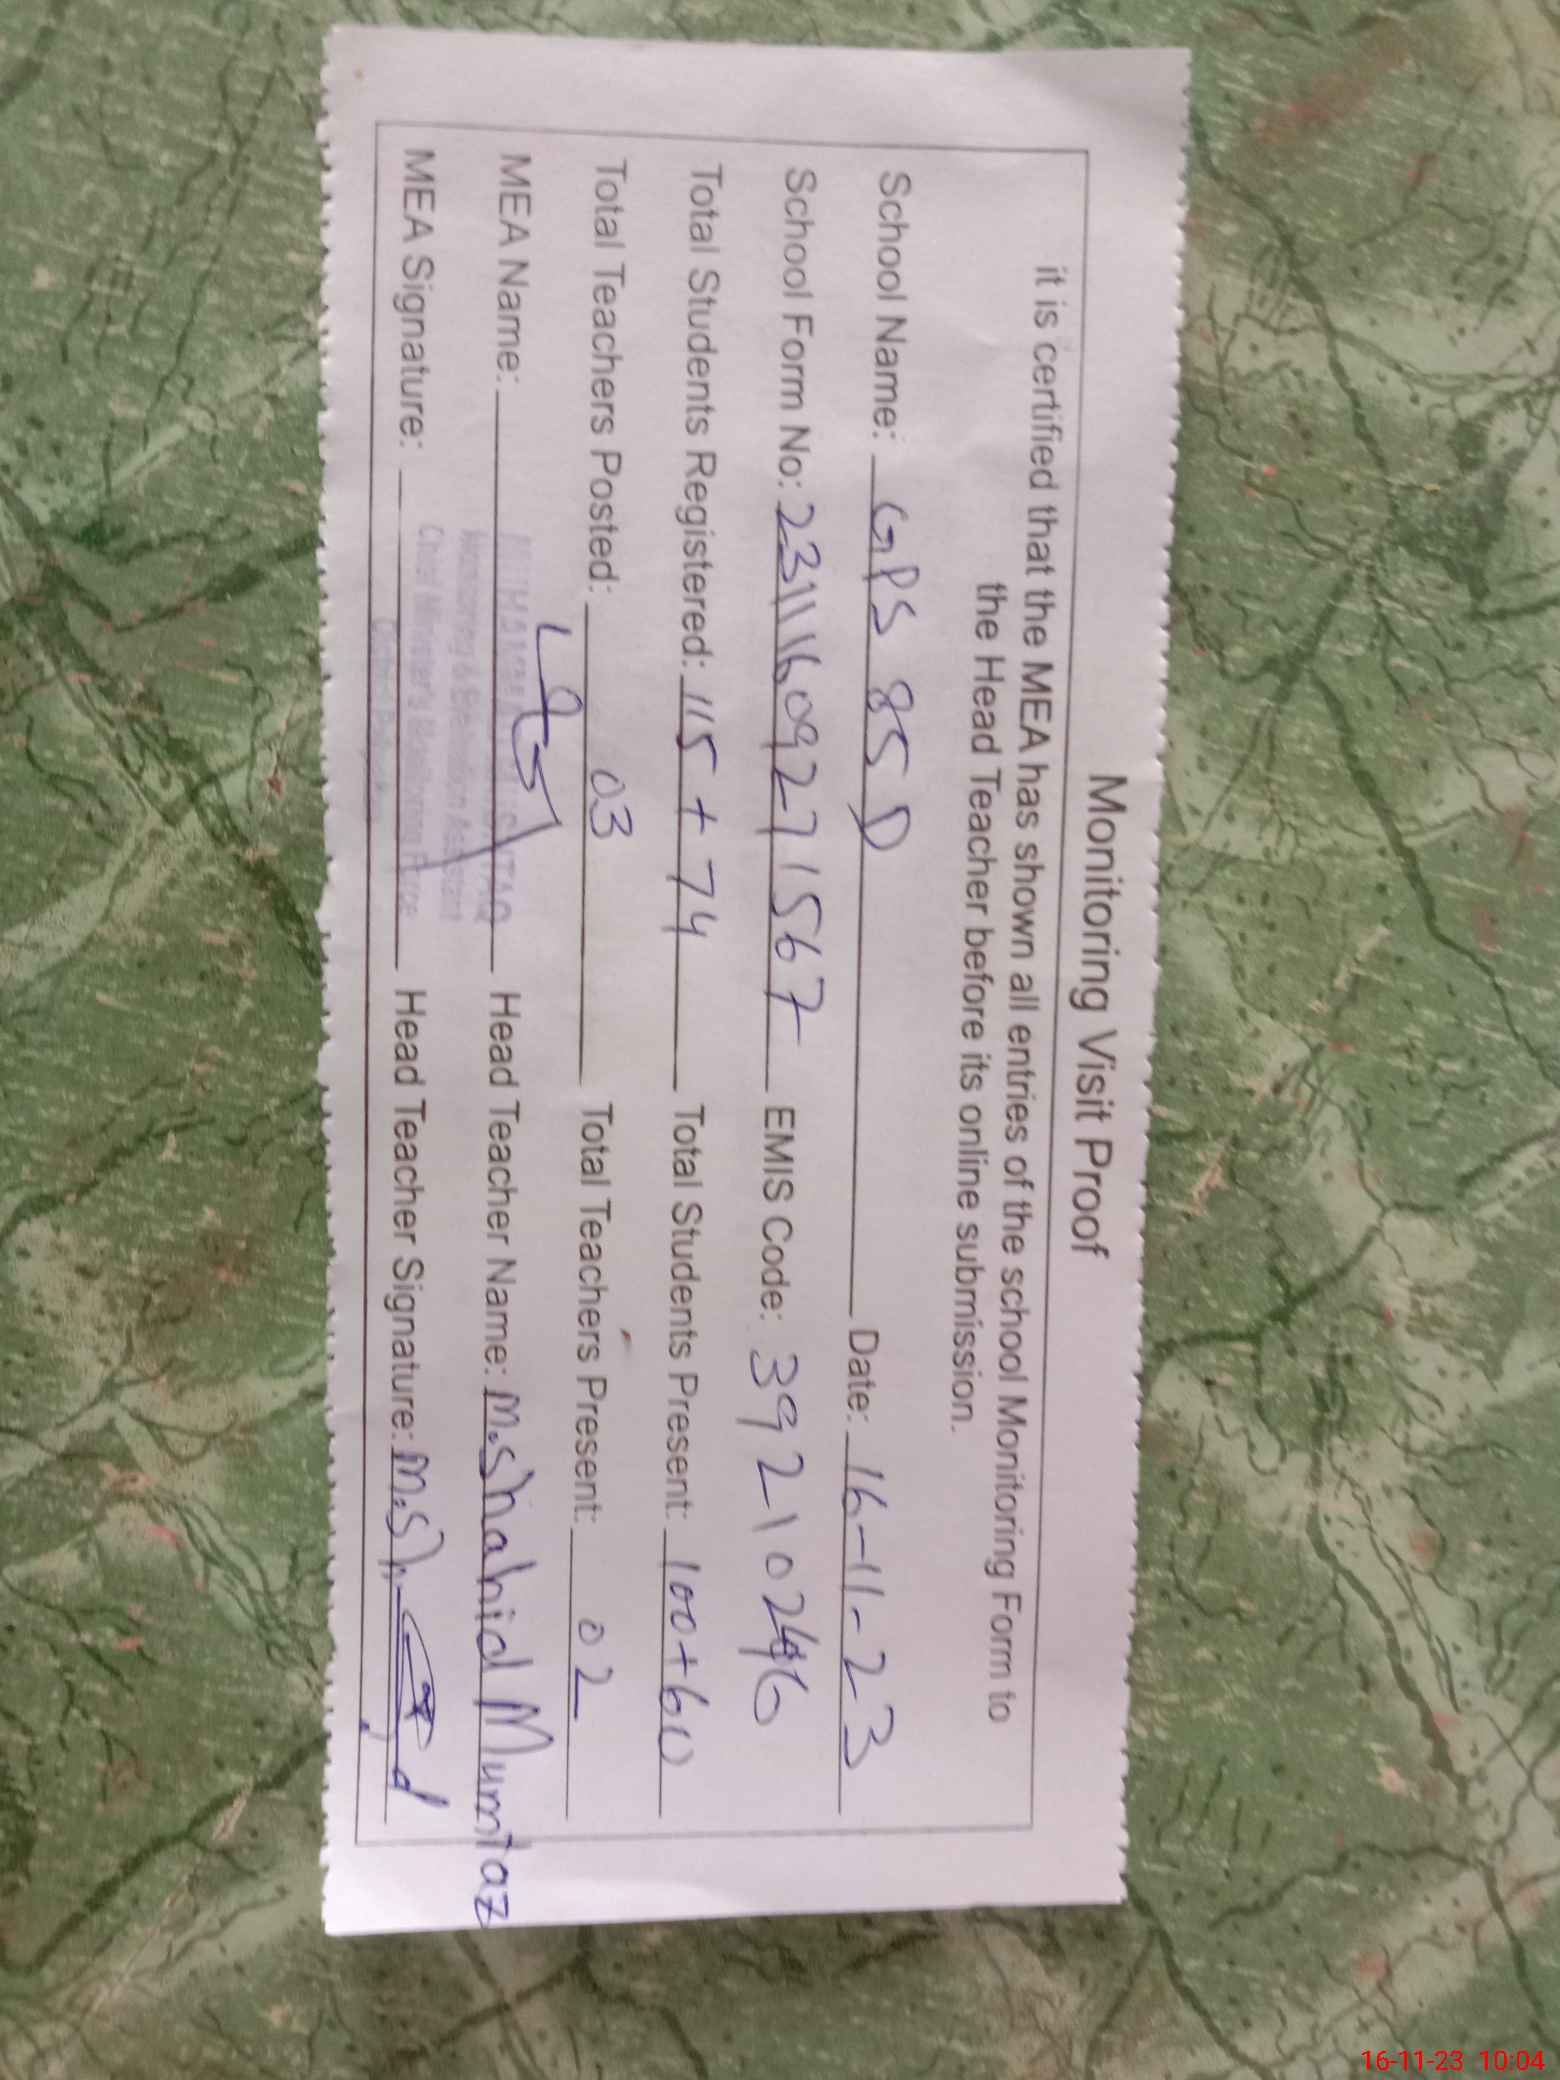 Monitoring Visit Proof
it is certified that the MEA has shown all entries of the school Monitoring Form to
the Head Teacher before its online submission.
School Name: GPS 85 D Date: 16-11-23
School Form No: 23111609271567 EMIS Code: 39210246
Total Students Registered: 115 + 74 Total Students Present: 100+60
Total Teachers Posted: 03 Total Teachers Present: 02
MEA Name: Head Teacher Name: M.Shahid Mumtaz
Monitoring & Evaluation Assistant
MEA Signature: Head Teacher Signature: M.Sh
Chief Minister's Monitoring Force
16-11-23 10:04